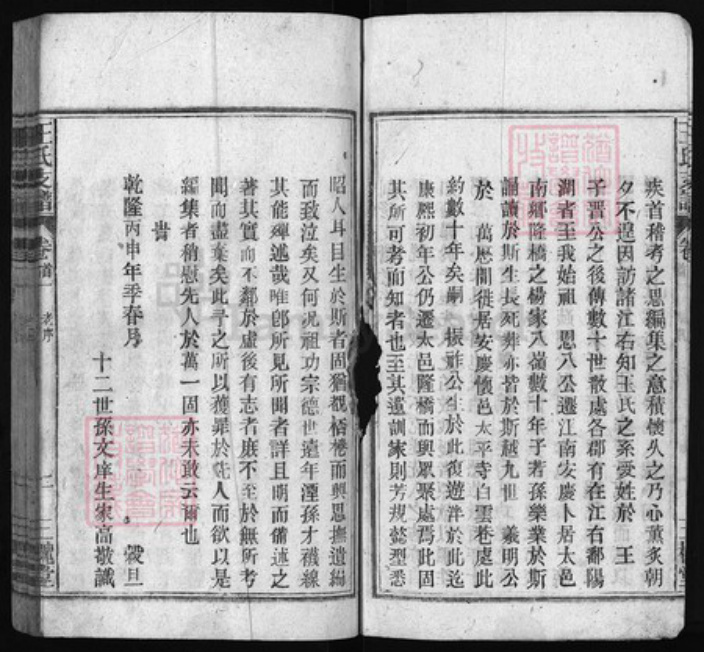 疾首稽考之思編集之意積懷久之乃心薰炙朝
夕不遑因訪諸江右知王氏之系受姓於　王
子晋公之後傳數十世散處各郡有在江右鄱陽
湖者王我始祖　思八公遷江南安慶卜居太邑
南鄉隆橋之楊家八嶺數十年子若孫樂業於斯
誦讀於斯生長死葬亦皆於斯越九世　義明公
於　萬歷間徙居安慶懷邑太平寺白雲巷處此
約數十年矣嗣　振祚公生於此復遊泮於此迄
康熙初年公仍遷太邑隆橋而與眾聚處焉此固
其所可考而知者也至其遺訓家則芳規懿型悉
昭人耳目生於斯者固猶覩桮棬而興思撫遺編
而致泣矣又何况祖功宗德世遠年湮孫才襪線
其能殫述哉唯卽所見所聞者詳且明而備述之
著其實而不鄰於虛後有志者庶不至於無所考
聞而盡棄矣此予之所以獲罪於先人而欲以是
編集者稍慰先人於萬一固亦未敢云爾也
旹
乾隆丙申年季春月　穀旦
十二世孫文庠生家高敬識
王氏支譜
卷首一
老序
二
三槐堂
王氏支譜
卷首
三槐堂